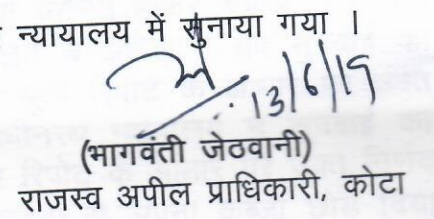 न्यायालय में सुनाया गया ।
13/6/19
(भागवंती जेठवानी)
राजस्व अपील प्राधिकारी, कोटा